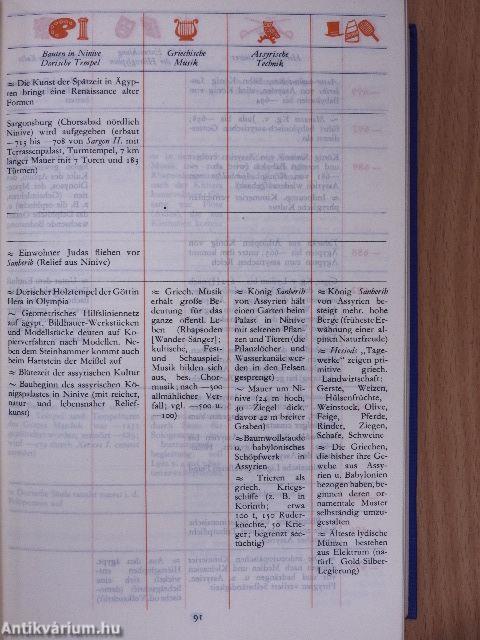 Bauten in Ninive
Dorische Tempel
Griechische
Musik
Assyrische
Technik
≈ Die Kunst der Spätzeit in Ägyp-
ten bringt eine Renaissance alter
Formen
Sargonsburg (Chorsabad nördlich
Ninive) wird aufgegeben (erbaut
–713 bis –708 von Sargon II. mit
Terrassenpalast, Turmtempel, 7 km
langer Mauer mit 7 Toren und 183
Türmen)
≈ Einwohner Judas fliehen vor
Sanherib (Relief aus Ninive)
≈ Dorischer Holztempel der Göttin
Hera in Olympia
≈ Geometrisches Hilfsliniennetz
auf ägypt. Bildhauer-Werkstücken
und Modellstücke deuten auf Ko-
pierverfahren nach Modellen. Ne-
ben dem Steinhammer kommt auch
beim Hartstein der Meißel auf
≈ Blütezeit der assyrischen Kultur
≈ Baubeginn des assyrischen Kö-
nigspalastes in Ninive (mit reicher,
natur und lebensnaher Relief-
kunst)
≈ Griech. Musik
erhält große Be-
deutung für das
ganze öffentl. Le-
ben (Rhapsoden
[Wander-Sänger];
kultische, Fest-
und Schauspiel-
Musik bilden sich
aus, bes. Chor-
musik; nach –500
allmählicher Ver-
fall; vgl. –500 u.
– 100)
≈ König Sanherib
von Assyrien hält
einen Garten beim
Palast in Ninive
mit seltenen Pflan-
zen und Tieren (die
Pflanzlöcher und
Wasserkanäle wer-
den in den Felsen
gesprengt)
≈ Mauer um Ni-
nive (24 m hoch,
40 Ziegel dick,
davor 42 m breiter
Graben)
≈ Baumwollstaude
u. babylonisches
Schöpfwerk in
Assyrien
≈ Trieren als
griech. Kriegs-
schiffe (z. B. in
Korinth; etwa
100 t, 150 Ruder-
knechte, 50 Krie-
ger; begrenzt see-
tüchtig)
≈ König Sanherib
von Assyrien be-
steigt mehr. hohe
Berge (früheste Er-
wähnung einer al-
pinen Naturfreude)
≈ Hesiods „Tage-
werke" zeigen pri-
mitive griech.
Landwirtschaft:
Gerste, Weizen,
Hülsenfrüchte,
Weinstock, Olive,
Feige, Pferde,
Rinder, Ziegen,
Schafe, Schweine
≈ Die Griechen,
die bisher ihre Ge-
webe aus Assy-
rien u. Babylonien
bezogen haben, be-
ginnen deren or-
namentale Muster
selbständig umzu-
gestalten
≈ Älteste lydische
Münzen bestehen
aus Elektrum (na-
türl. Gold-Silber-
Legierung)
91
Antikvárium.hu